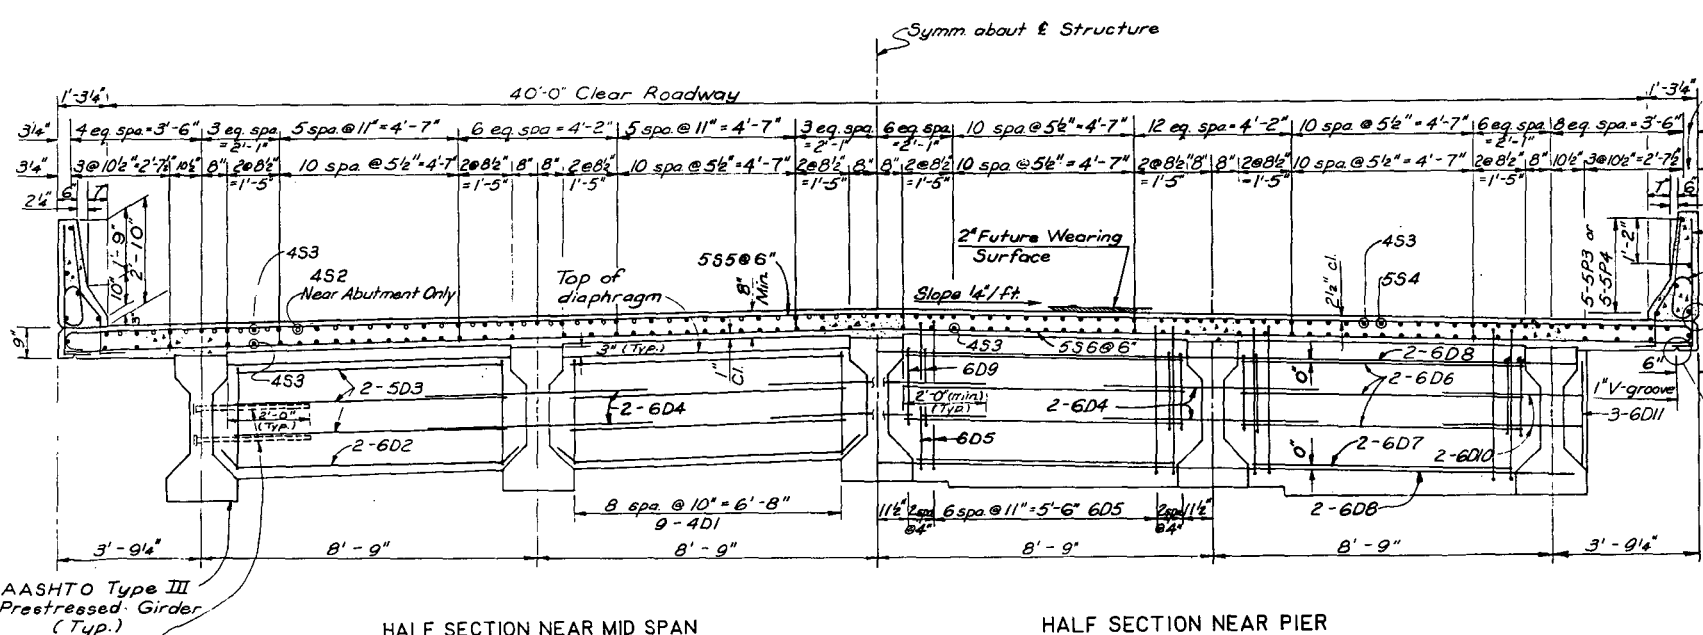 Symm. about ℄ Structure
1'-3¼"
40'-0" Clear Roadway
1'-3¼"
3¼"
4 eq. spa. = 3'-6"
3 eq. spa. = 2'-1"
5 spa. @ 11" = 4'-7"
6 eq. spa = 4'-2"
5 spa. @ 11" = 4'-7"
3 eq. spa = 2'-1"
6 eq. spa. = 2'-1"
10 spa. @ 5½" = 4'-7"
12 eq. spa = 4'-2"
10 spa. @ 5½" = 4'-7"
6 eq. spa = 2'-1"
8 eq. spa. = 3'-6"
3¼"
3@10½"=2'-7½"
10½"
8"
2@8½" =1'-5"
10 spa. @ 5½" = 4'-7"
2@8½" =1'-5"
8"
8"
2@8½" 1'-5"
10 spa. @ 5½" = 4'-7"
2@8½" =1'-5"
8"
8"
2@8½ =1'-5"
10 spa. @ 5½" = 4'-7"
2@8½" =1'-5"
8"
8"
2@8½" =1'-5"
10 spa. @ 5½" = 4'-7"
2@8½" =1'-5"
8"
10½"
3@10½"=2'-7½"
6"
7"
2¼"
7"
6"
10"
1'-9"
2'-10"
3"
9"
4S3
4S2
Near Abutment Only
Top of
diaphragm
5S5@6"
8"
Min.
2" Future Wearing
Surface
Slope ¼"/ft.
2½" cl.
4S3
5S4
5-5P3 or
5-5P4
1'-2"
4S3
3" (Typ.)
1"
Cl.
4S3
5S6@6"
2-6D8
6"
2-5D3
2'-0"
(Typ.)
2-6D4
6D9
2'-0"(min.)
(Typ.)
2-6D4
0"
2-6D6
1" V-groove
3-6D11
2-6D2
6D5
0"
2-6D7
2-6D10
8 spa. @ 10" = 6'-8"
9-4D1
11½"
2 spa @4"
6 spa. @ 11" = 5'-6" 6D5
2 spa @4"
11½"
2-6D8
3'-9¼"
8'-9"
8'-9"
8'-9"
8'-9"
3'-9¼"
AASHTO Type III
Prestressed Girder
(Typ.)
HALF SECTION NEAR MID SPAN
HALF SECTION NEAR PIER